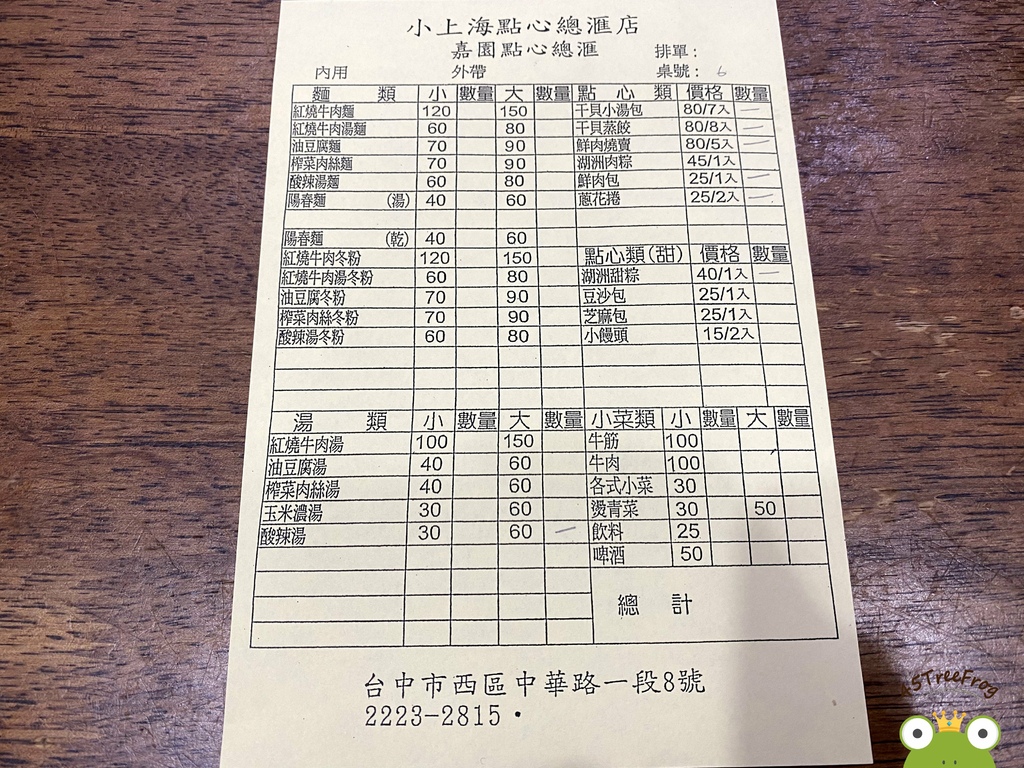 小上海點心總滙店
嘉園點心總滙 排單：
內用 外帶 桌號： 6
麵 類 小 數量 大 數量 點 心 類 價格 數量
紅燒牛肉麵 120 150 干貝小湯包 80/7入 一
紅燒牛肉湯麵 60 80 干貝蒸餃 80/8入 一
油豆腐麵 70 90 鮮肉燒賣 80/5入 一
榨菜肉絲麵 70 90 湖洲肉粽 45/1入
酸辣湯麵 60 80 鮮肉包 25/1入 一
陽春麵 (湯) 40 60 蔥花捲 25/2入 一
陽春麵 (乾) 40 60
紅燒牛肉冬粉 120 150 點心類(甜) 價格 數量
紅燒牛肉湯冬粉 60 80 湖洲甜粽 40/1入 一
油豆腐冬粉 70 90 豆沙包 25/1入
榨菜肉絲冬粉 70 90 芝麻包 25/1入
酸辣湯冬粉 60 80 小饅頭 15/2入
湯 類 小 數量 大 數量 小菜類 小 數量 大 數量
紅燒牛肉湯 100 150 牛筋 100
油豆腐湯 40 60 牛肉 100
榨菜肉絲湯 40 60 各式小菜 30
玉米濃湯 30 60 燙青菜 30 50
酸辣湯 30 60 一 飲料 25
啤酒 50
總 計
台中市西區中華路一段8號
2223-2815
45TreeFrog